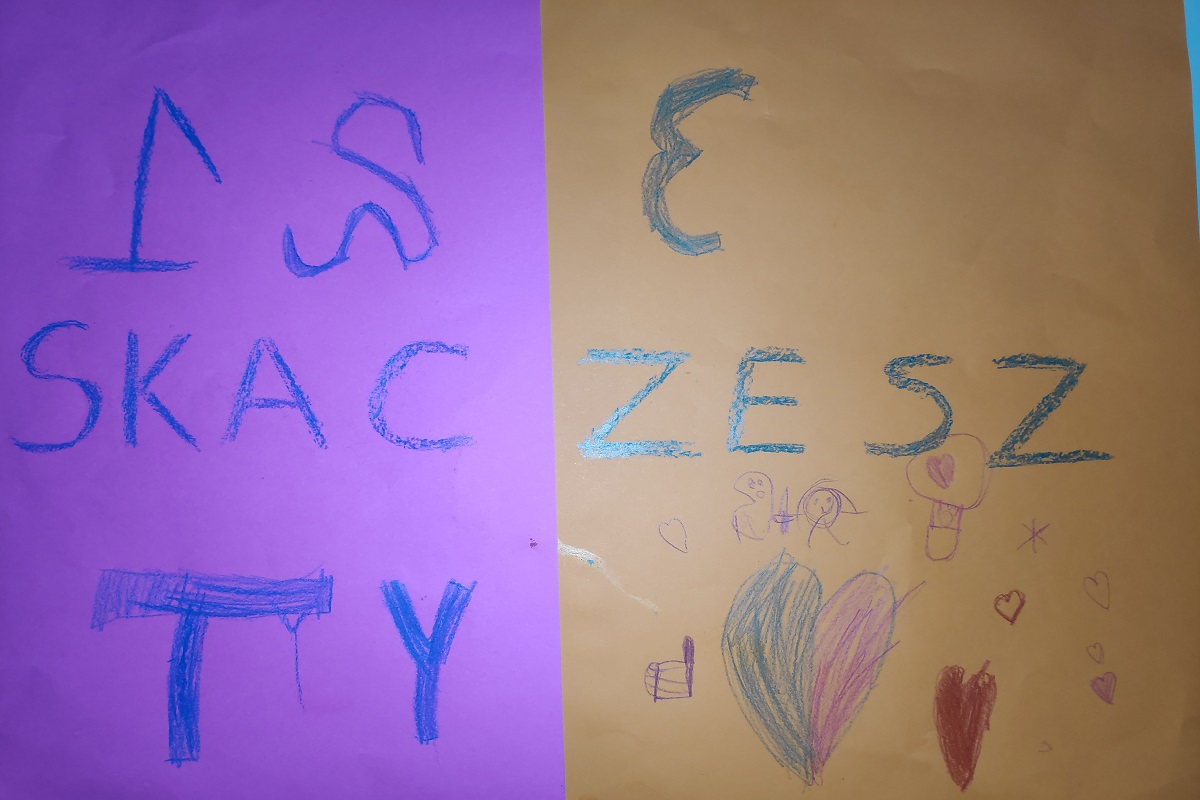 1 2 3
SKACZESZ
TY